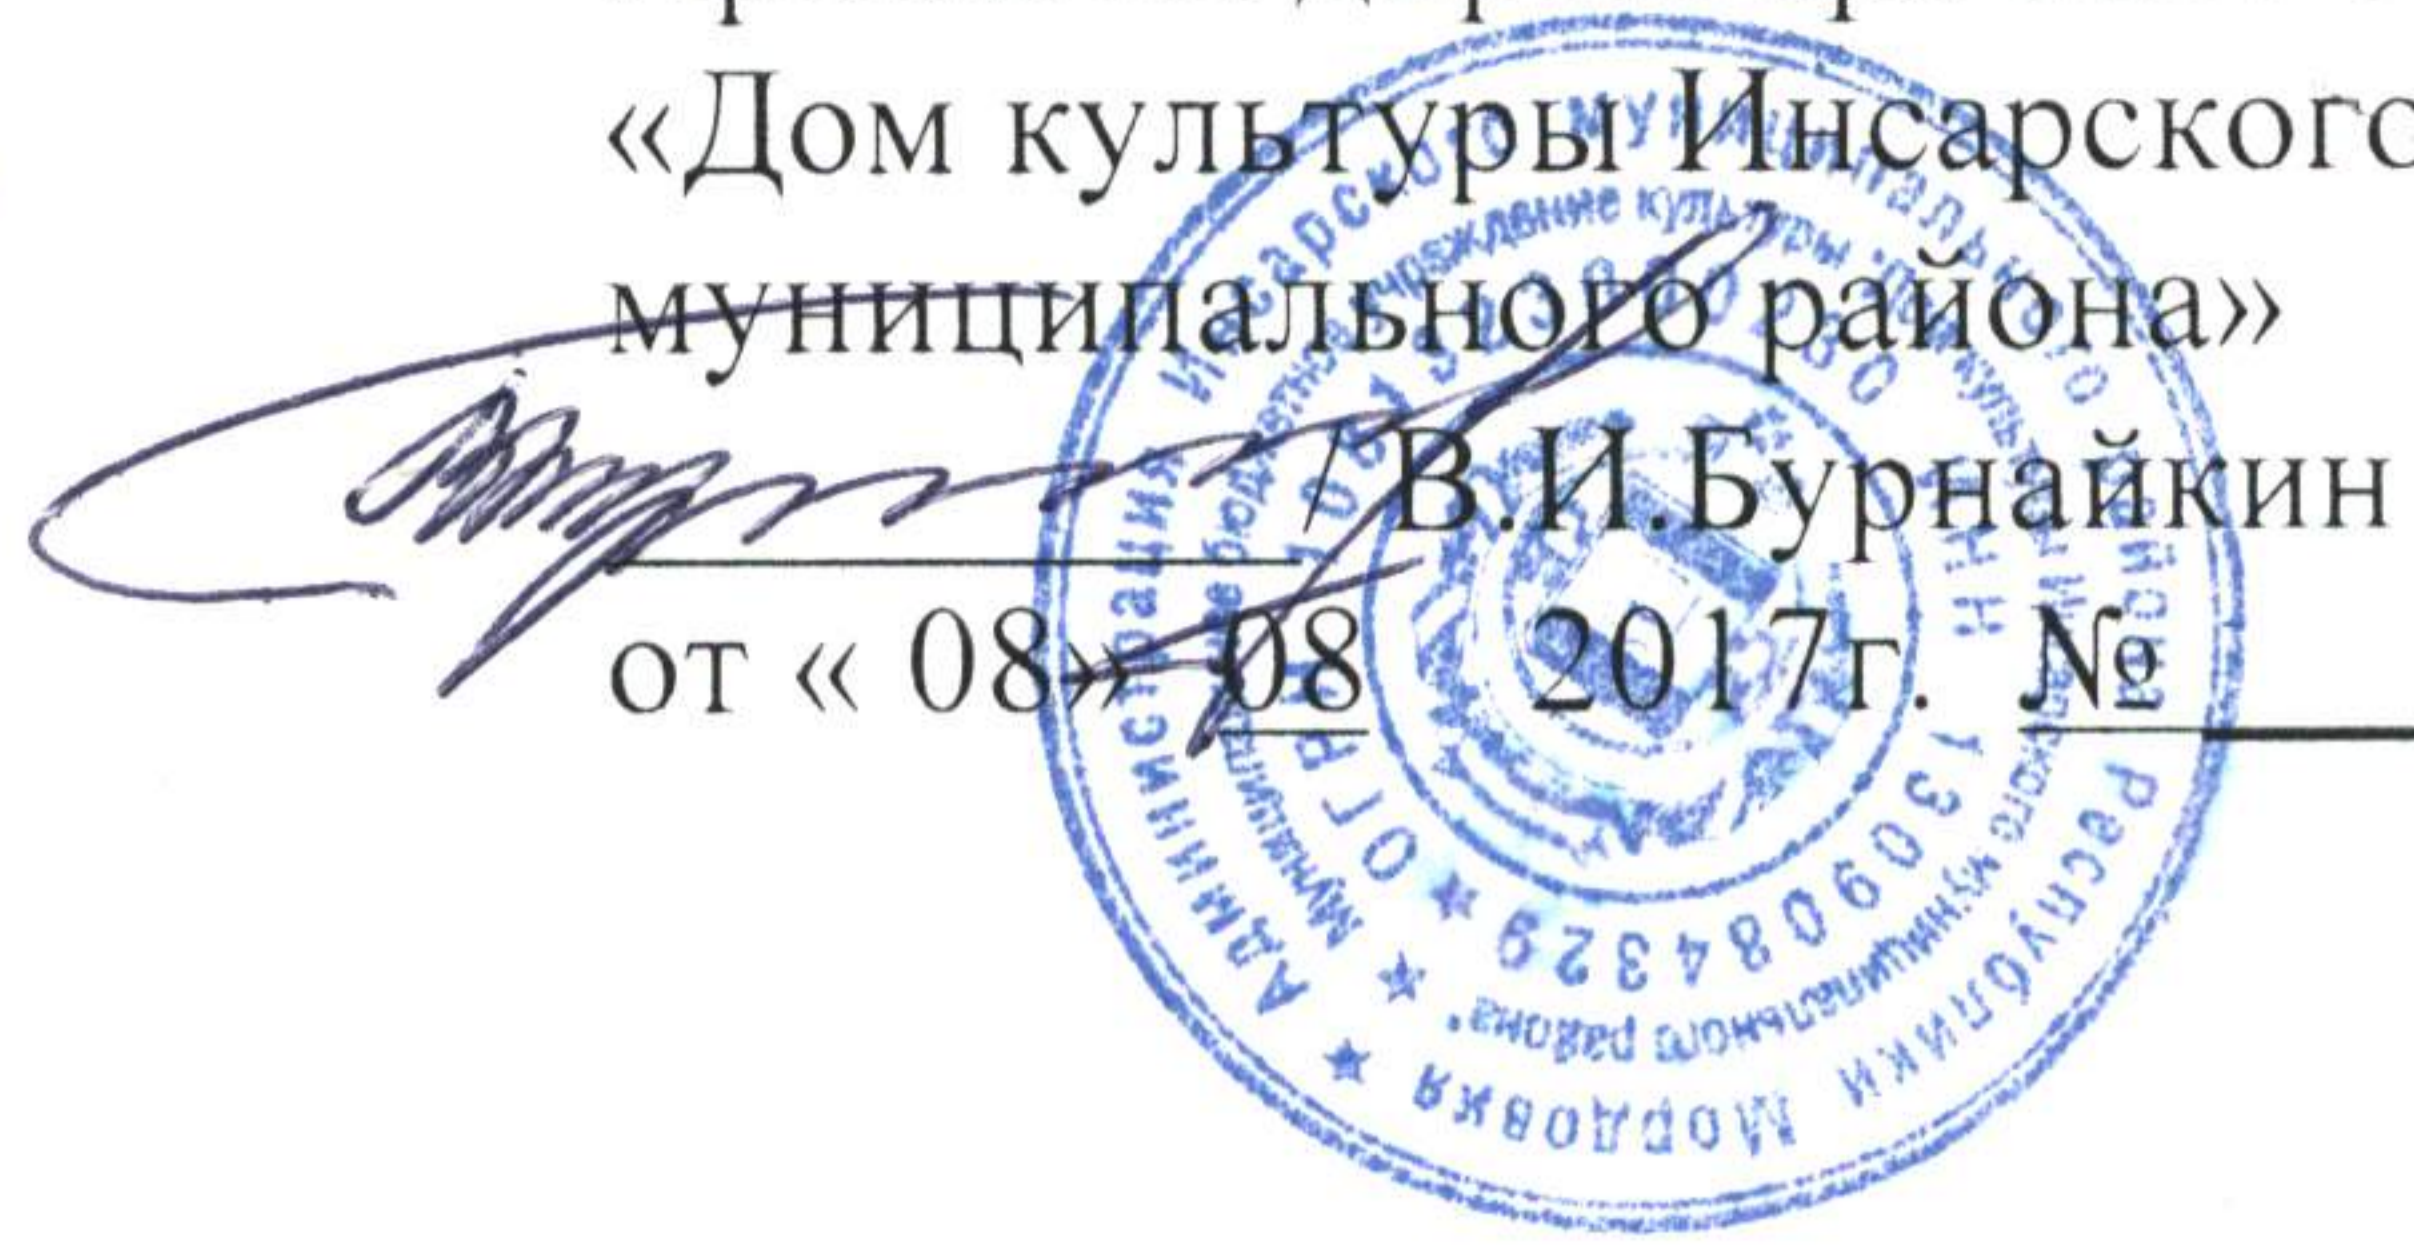 «Дом культуры Инсарского
муниципального района»
/ В.И.Бурнайкин
от « 08» 08 2017г. №
Администрация Инсарского муниципального района Республики Мордовия
Муниципальное бюджетное учреждение культуры "Дом культуры Инсарского муниципального района"
ОГРН ИНН 1309084329